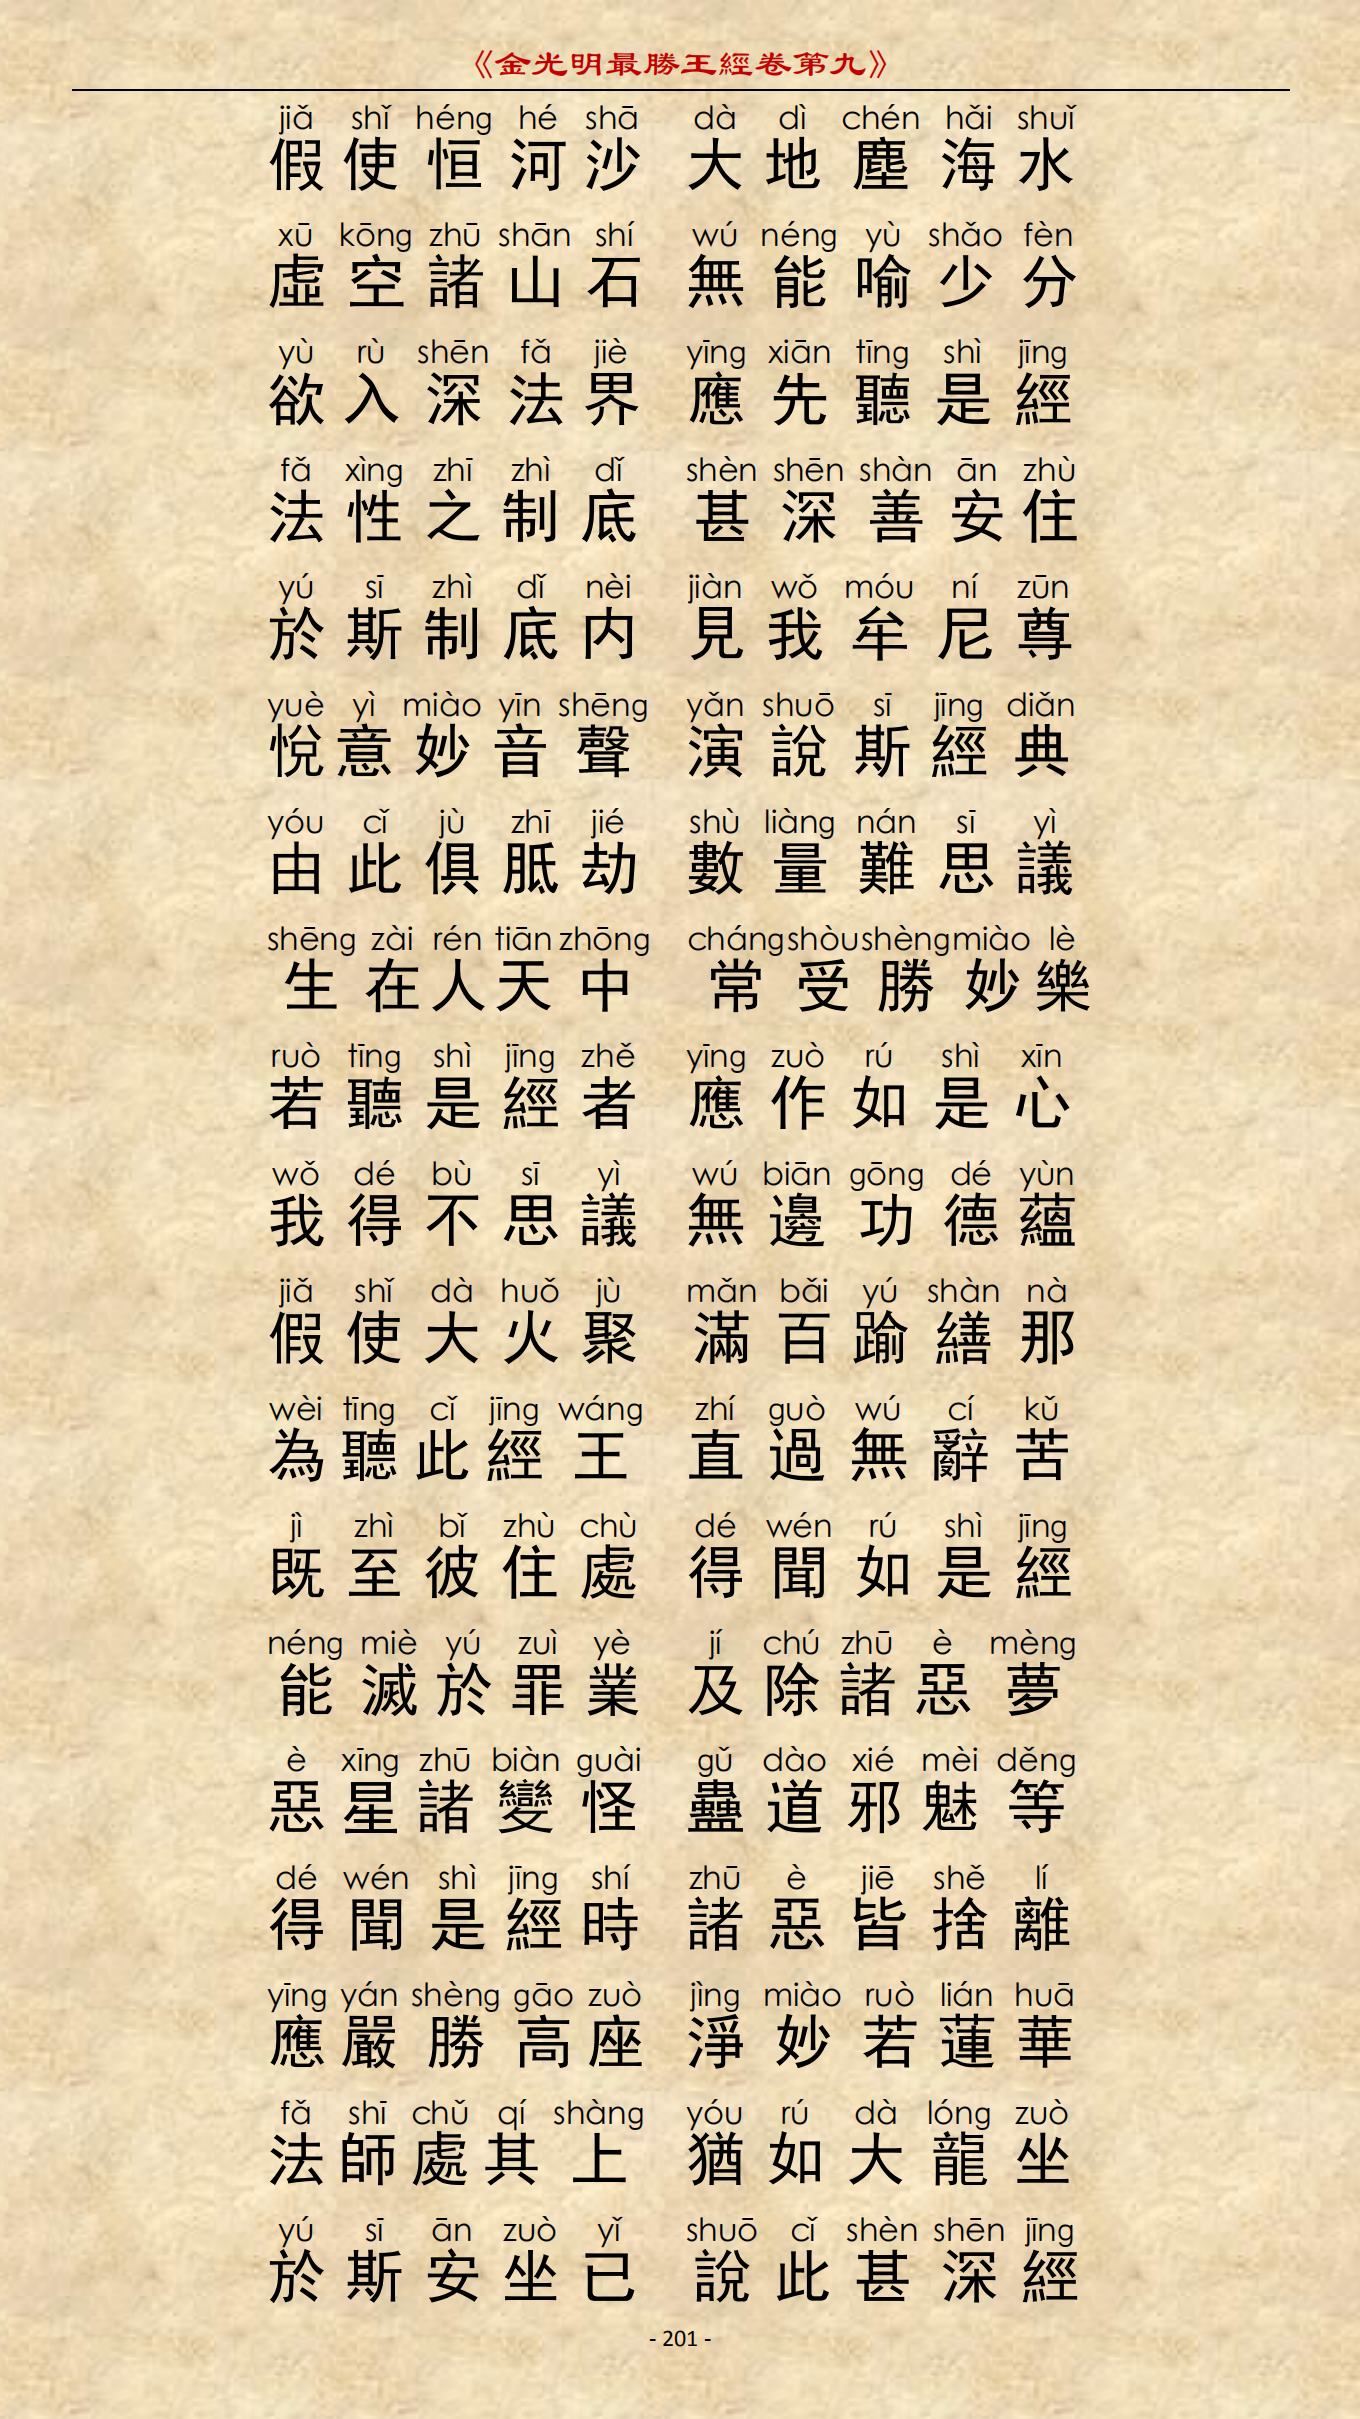 《金光明最勝王經卷第九》
jiǎ shǐ héng hé shā dà dì chén hǎi shuǐ
假使恒河沙 大地塵海水
xū kōng zhū shān shí wú néng yù shǎo fèn
虛空諸山石 無能喻少分
yù rù shēn fǎ jiè yīng xiān tīng shì jīng
欲入深法界 應先聽是經
fǎ xìng zhī zhì dǐ shèn shēn shàn ān zhù
法性之制底 甚深善安住
yú sī zhì dǐ nèi jiàn wǒ móu ní zūn
於斯制底内 見我牟尼尊
yuè yì miào yīn shēng yǎn shuō sī jīng diǎn
悅意妙音聲 演說斯經典
yóu cǐ jù zhī jié shù liàng nán sī yì
由此俱胝劫 數量難思議
shēng zài rén tiān zhōng cháng shòu shèng miào lè
生在人天中 常受勝妙樂
ruò tīng shì jīng zhě yīng zuò rú shì xīn
若聽是經者 應作如是心
wǒ dé bù sī yì wú biān gōng dé yùn
我得不思議 無邊功德蘊
jiǎ shǐ dà huǒ jù mǎn bǎi yú shàn nà
假使大火聚 滿百踰繕那
wèi tīng cǐ jīng wáng zhí guò wú cí kǔ
為聽此經王 直過無辭苦
jì zhì bǐ zhù chù dé wén rú shì jīng
既至彼住處 得聞如是經
néng miè yú zuì yè jí chú zhū è mèng
能滅於罪業 及除諸惡夢
è xīng zhū biàn guài gǔ dào xié mèi děng
惡星諸變怪 蠱道邪魅等
dé wén shì jīng shí zhū è jiē shě lí
得聞是經時 諸惡皆捨離
yīng yán shèng gāo zuò jìng miào ruò lián huā
應嚴勝高座 淨妙若蓮華
fǎ shī chǔ qí shàng yóu rú dà lóng zuò
法師處其上 猶如大龍坐
yú sī ān zuò yǐ shuō cǐ shèn shēn jīng
於斯安坐已 說此甚深經
- 201 -